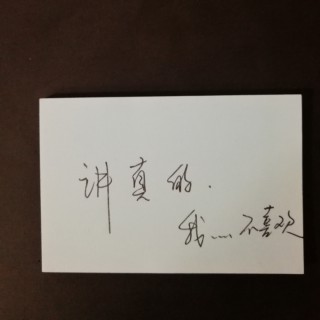 讲真的.
我....不喜欢